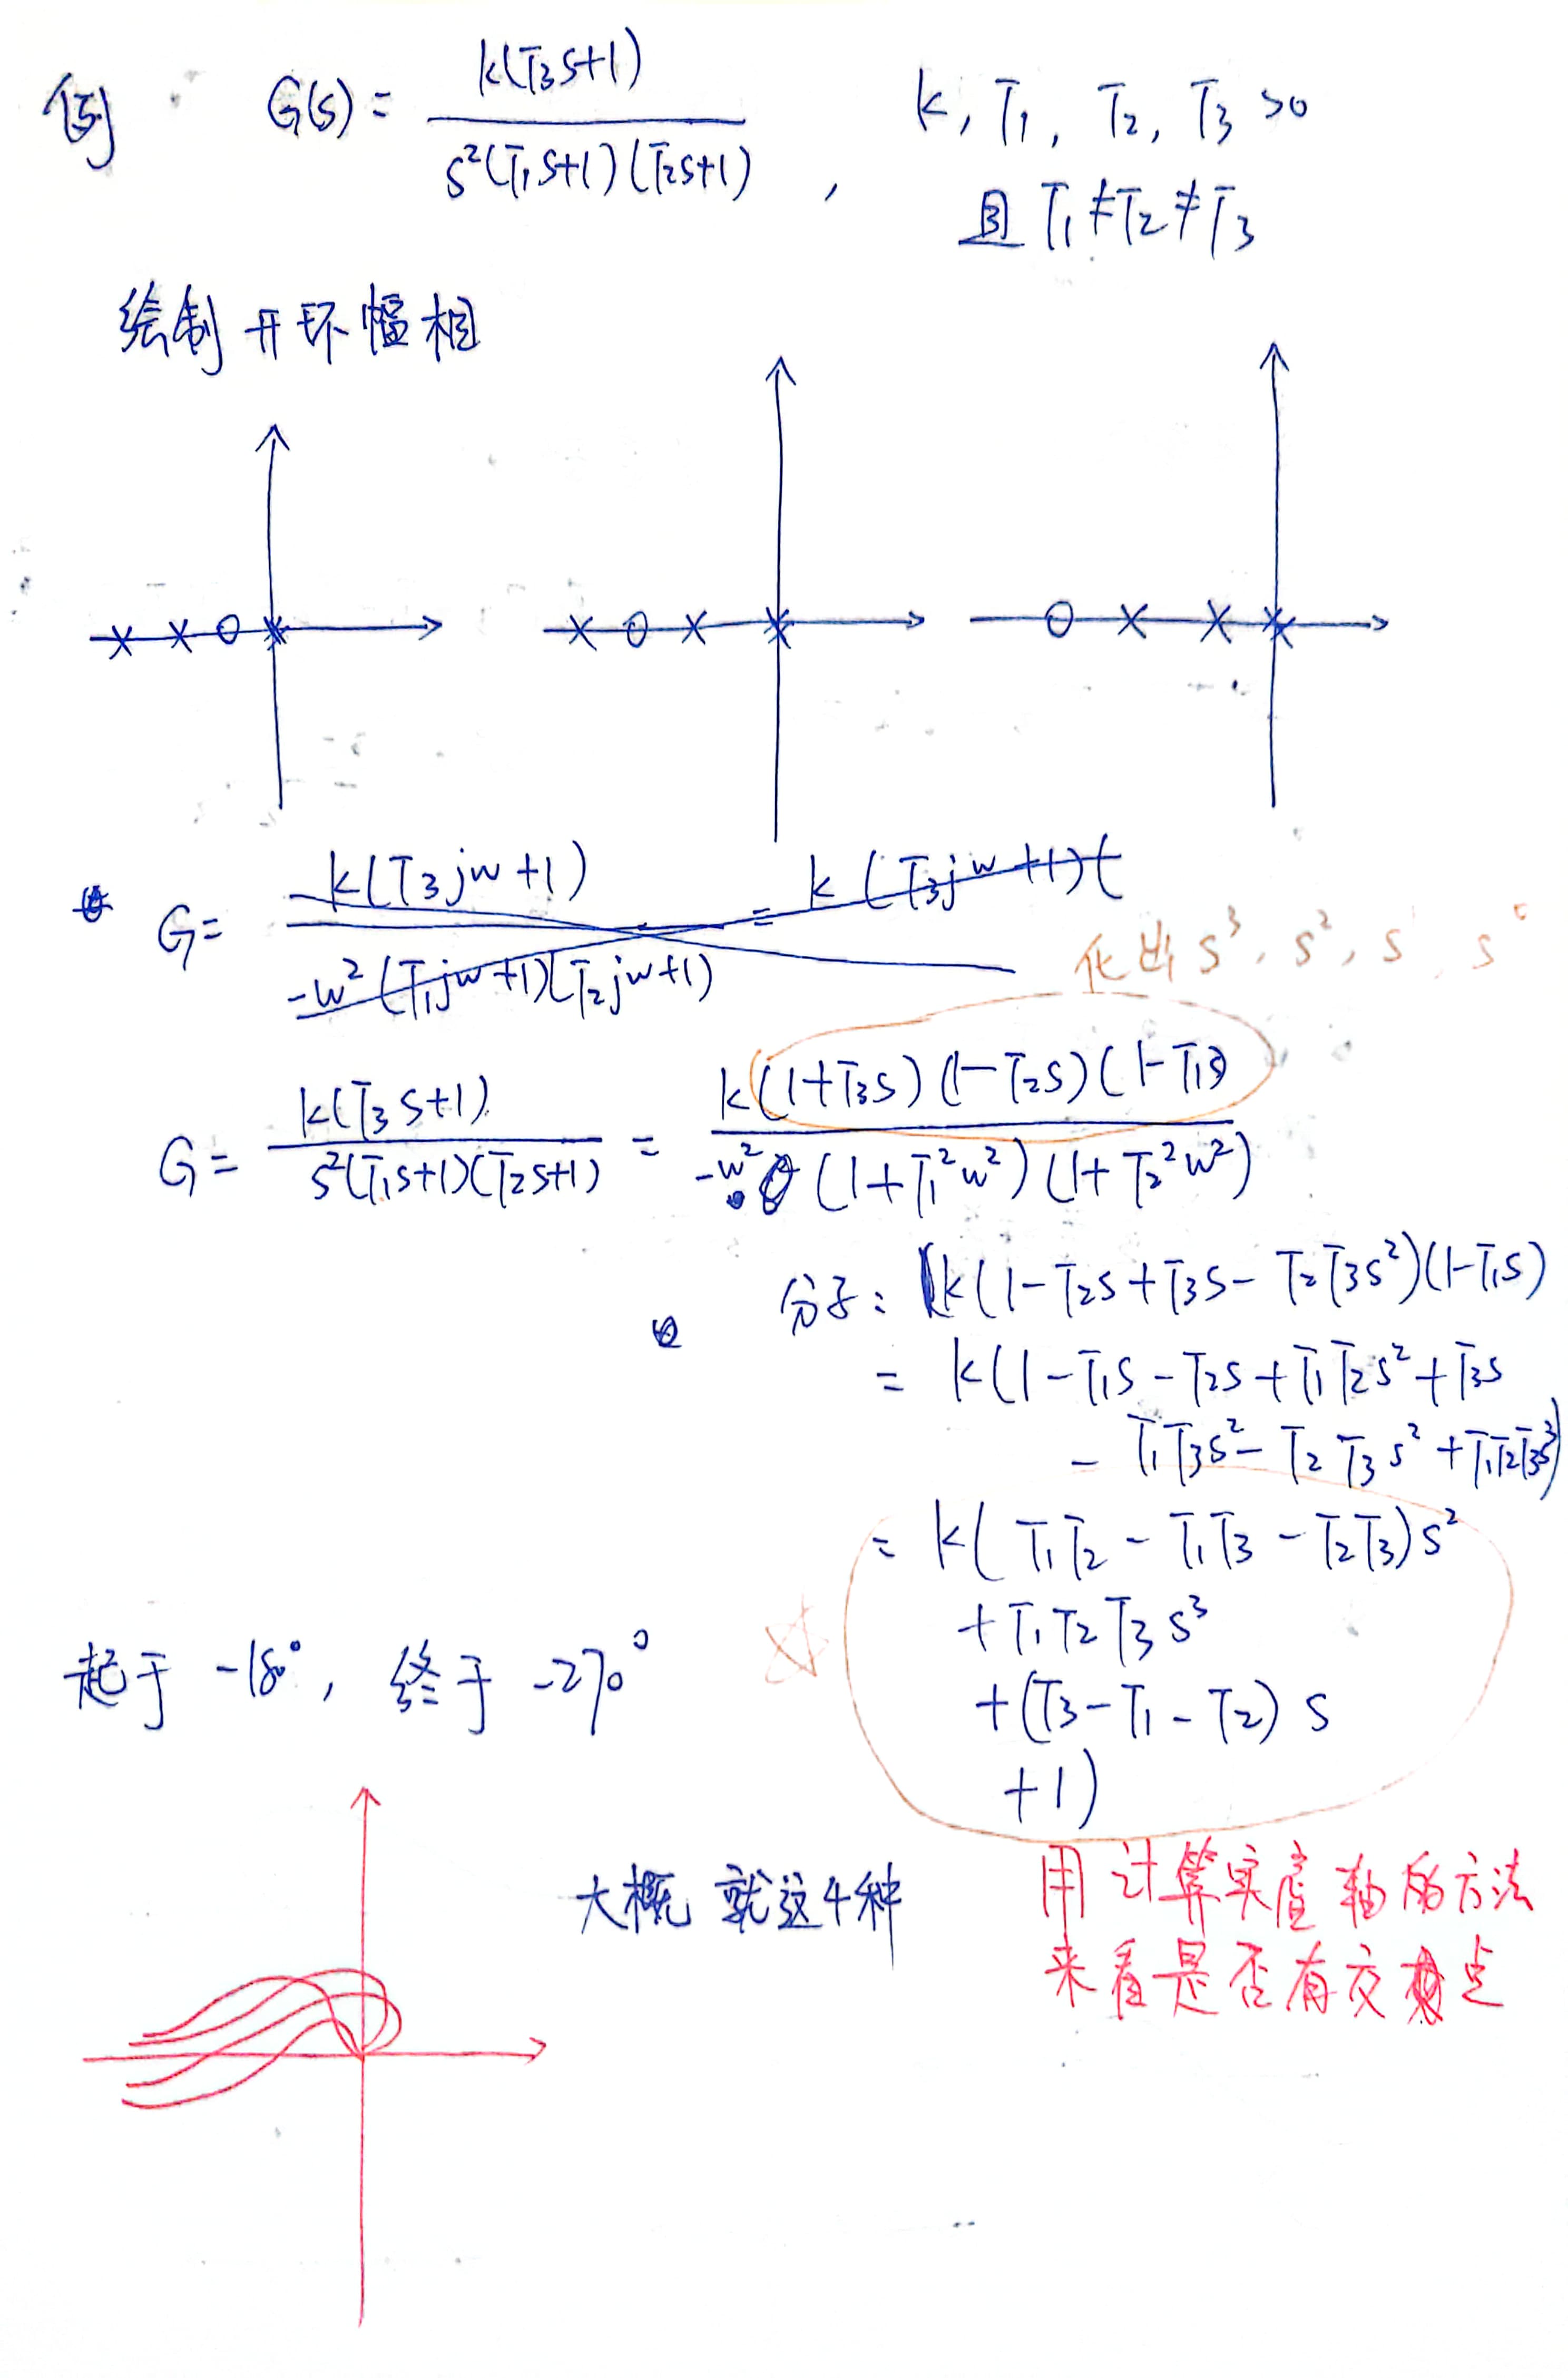 例 G(s) = k(T₃s+1) / s²(T₁s+1)(T₂s+1) , k, T₁, T₂, T₃ >0
且 T₁≠T₂≠T₃
绘制开环幅相
G= k(T₃jw+1) / -w²(T₁jw+1)(T₂jw+1) = k(T₃jw+1)(
化出 s³, s², s, s⁰
G= k(T₃s+1) / s²(T₁s+1)(T₂s+1) = k(1+T₃s)(1-T₂s)(1-T₁s) / -w²(1+T₁²w²)(1+T₂²w²)
分子: k(1-T₂s+T₃s-T₂T₃s²)(1-T₁s)
= k(1-T₁s-T₂s+T₁T₂s²+T₃s
-T₁T₃s²-T₂T₃s²+T₁T₂T₃s³)
= k(T₁T₂-T₁T₃-T₂T₃)s²
+T₁T₂T₃s³
+(T₃-T₁-T₂)s
+1)
起于 -180°, 终于 -270°
大概就这4种
用计算实虚轴的方法
来看是否有交点